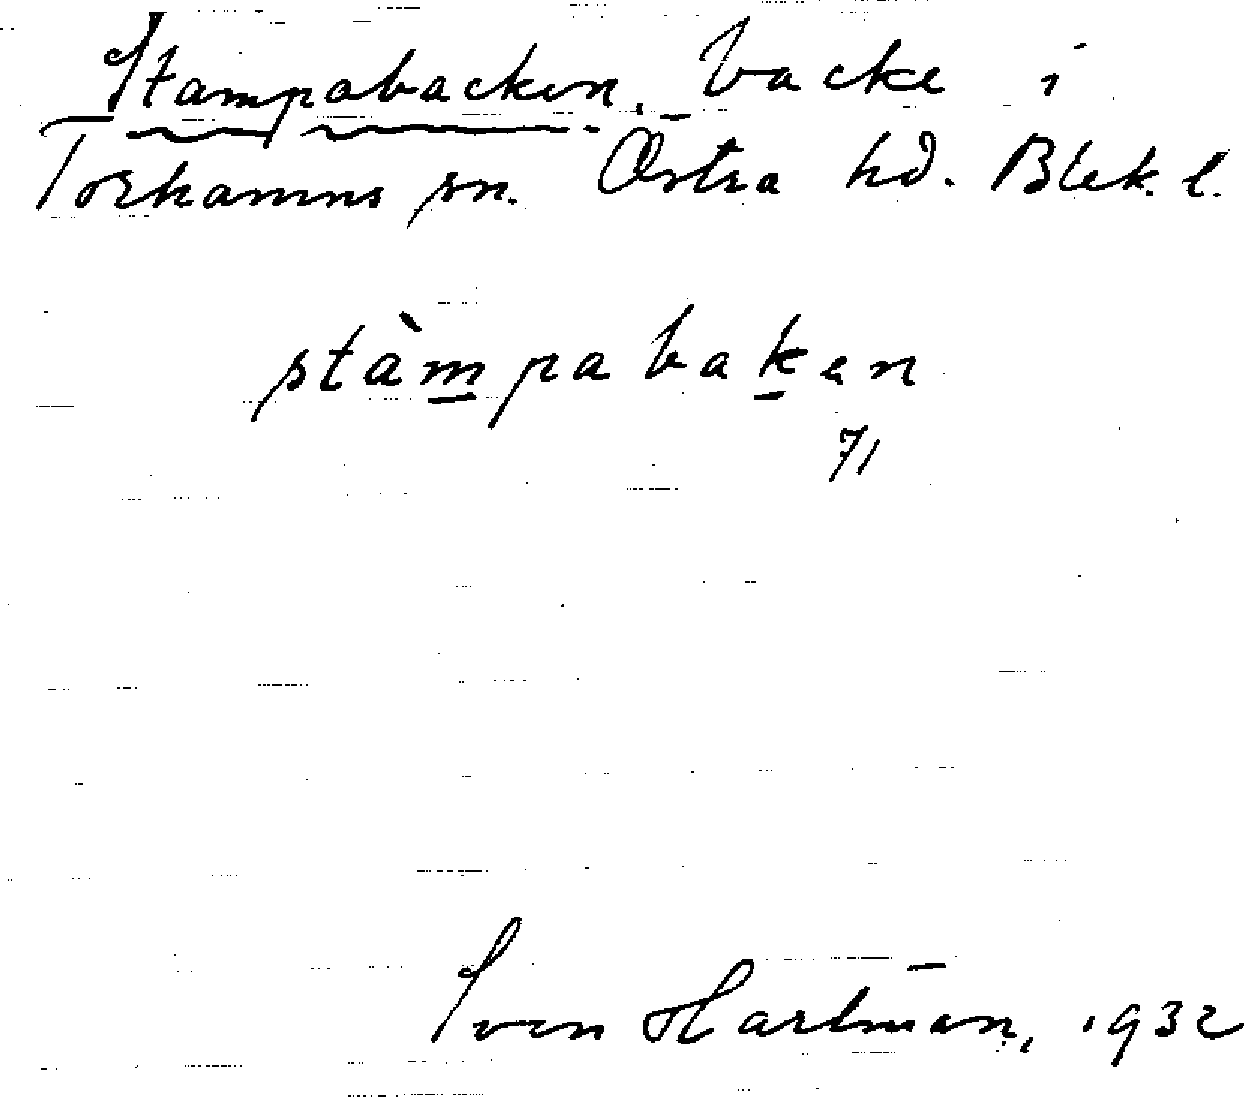 Stampabacken, backe i
Torhamns sn. Östra hd. Blek. l.
stàmpabaken
71
Sven Hartman, 1932